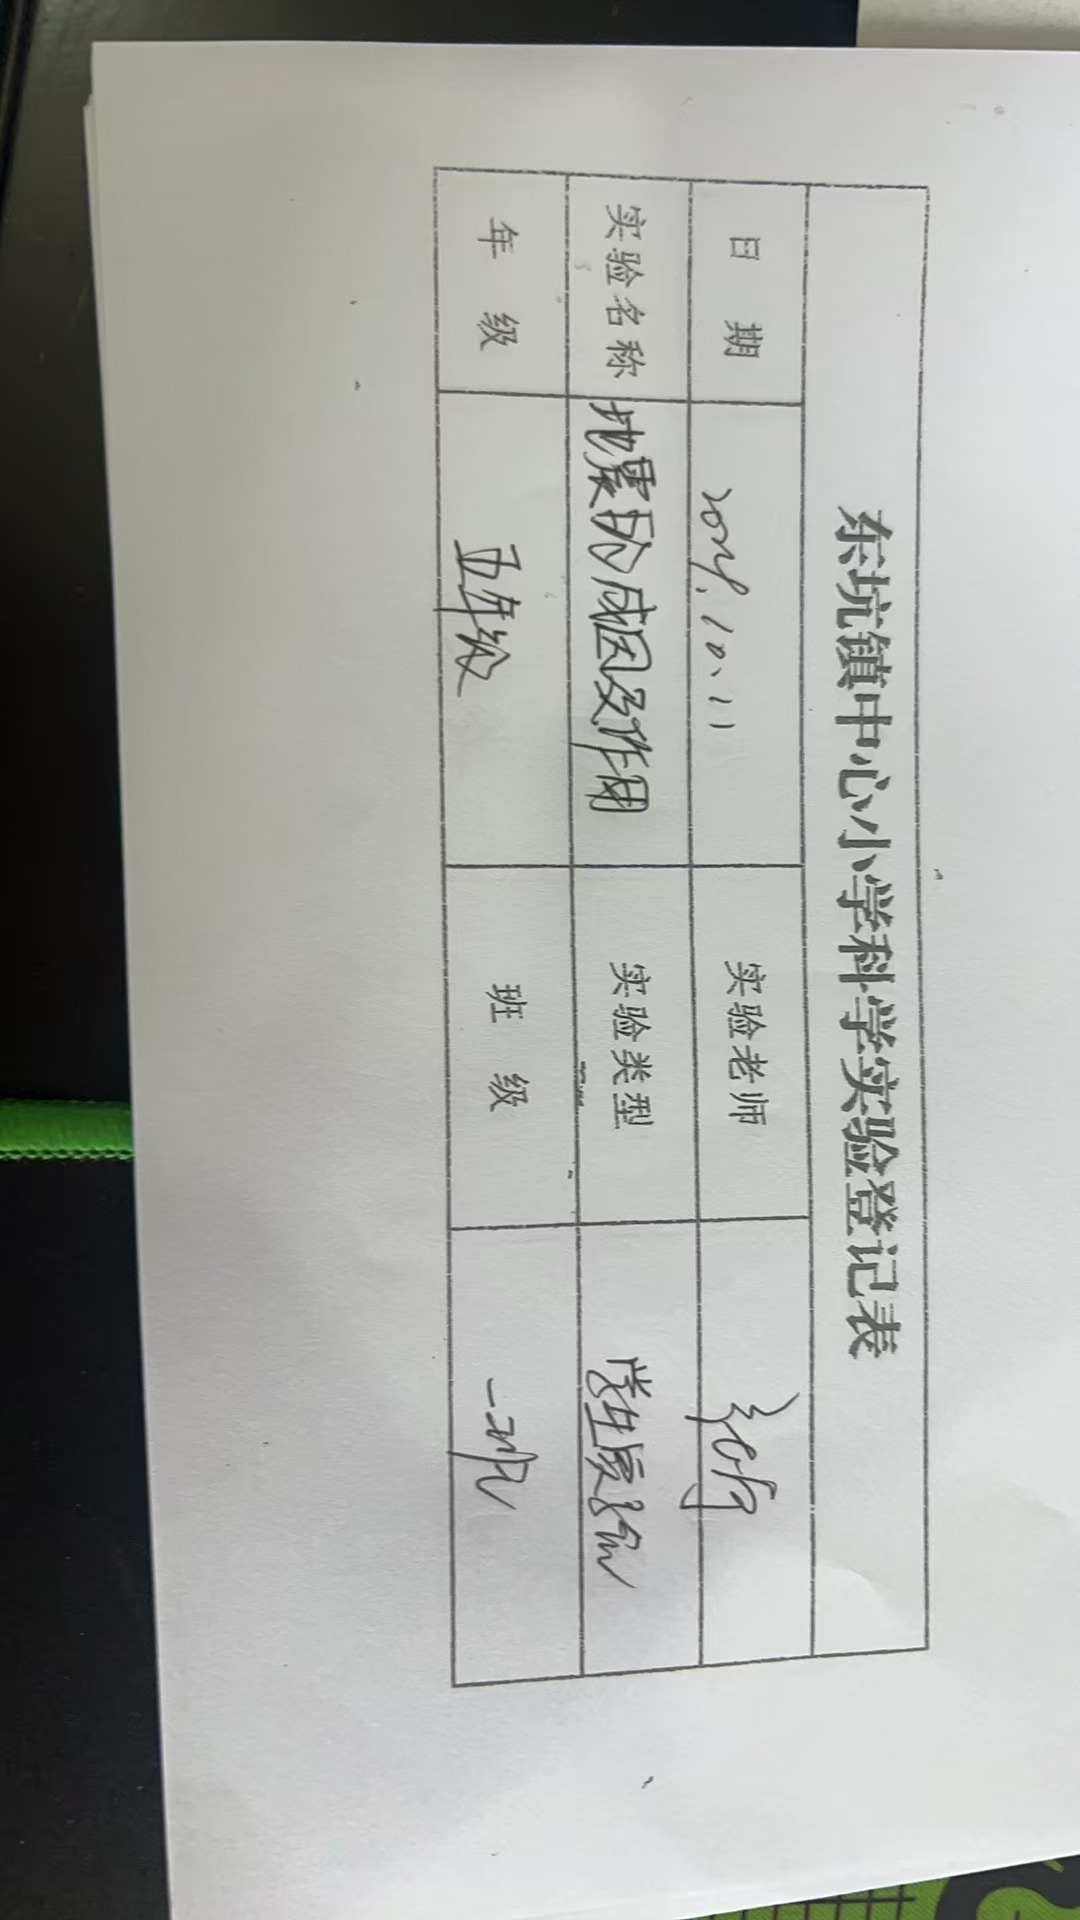 东坑镇中心小学科学实验登记表
日 期 2024.10.11 实验老师
实验名称 地震的成因及作用 实验类型 学生实验
年 级 五年级 班 级 一班